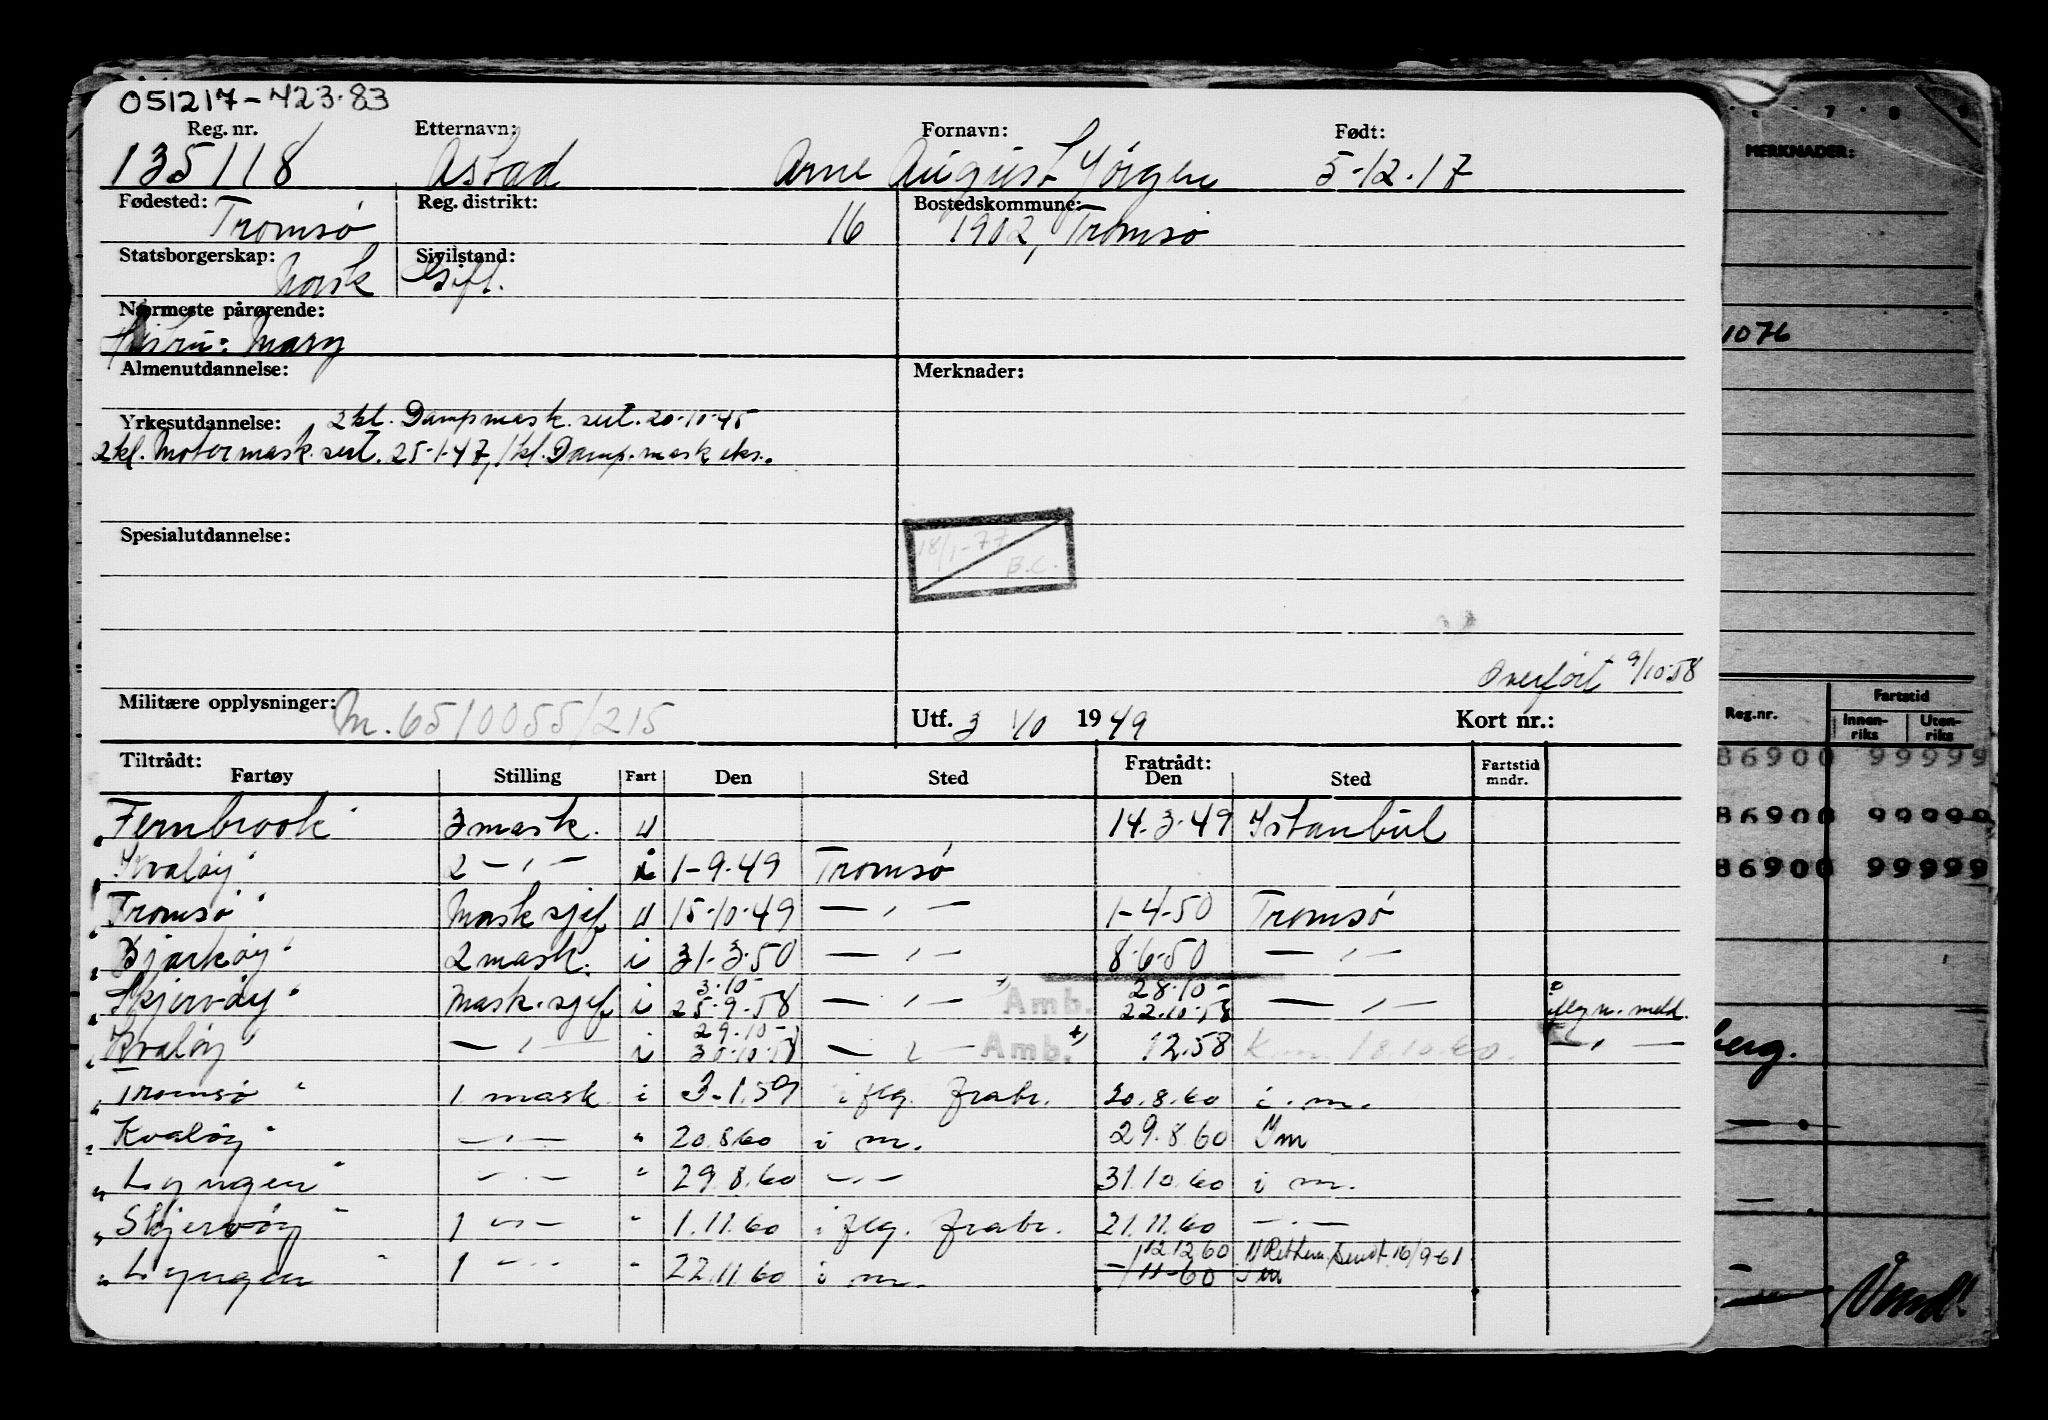 051217-423.83
Reg. nr. Etternavn: Fornavn: Født:
135118 Astad Arne August Jörgen 5-12-17
Fødested: Tromsø Reg. distrikt: 16 Bostedskommune: 1902, Tromsø
Statsborgerskap: Norsk Sivilstand: Gift.
Nærmeste pårørende:
Hustru: Mary
Almenutdannelse: Merknader:
Yrkesutdannelse: 2kl. Dampmask. sert. 20-10-45
2kl. Motormask. sert. 25-1-47, 1kl. Damp. mask eks.
Spesialutdannelse:
18/1-77
B.C.
Overført 9/10-58
Militære opplysninger: M. 6510055/215 Utf. 3/10 1949 Kort nr.:
Tiltrådt: Fratrådt:
Fartøy Stilling Fart Den Sted Den Sted Fartstid mndr.
"Fernbrook" 3 mask. u 14-3-49 Istanbul
"Kvaløy" 2 — " — i 1-9-49 Tromsø
"Tromsø" Mask.sjef u 15-10-49 — " — 1-4-50 Tromsø
"Bjarkøy" 2 mask. i 31-3-50 — " — 8-6-50 — " —
3-10- 28-10-
"Skjervøy" Mask.sjef i 25-9-58 — " — +) Amb. 22-10-58 — " — meld.
29-10-
"Kvaløy" — " — i 30-10-58 — " — Amb. +) 12.58 18.10.60. — " —
"Tromsø" 1. mask i 3.1.59 i flg. frabr. 20.8.60 i. m.
"Kvaløy" — " — " 20.8.60 i m. 29.8.60 Im
"Lyngen" — " — " 29.8.60 — " — 31.10.60 i m.
"Skjervøy" 1 — " — " 1.11.60 i flg. frabr. 21.11.60 — " —
12.12.60 16/9-61
"Lyngen" 1 — " — " 22.11.60 i m. -/11-60 Im
MERKNADER:
1076
Reg.nr. Fartstid
Innen-riks Uten-riks
86900 99999
86900 99999
86900 99999
berg.
Vend!